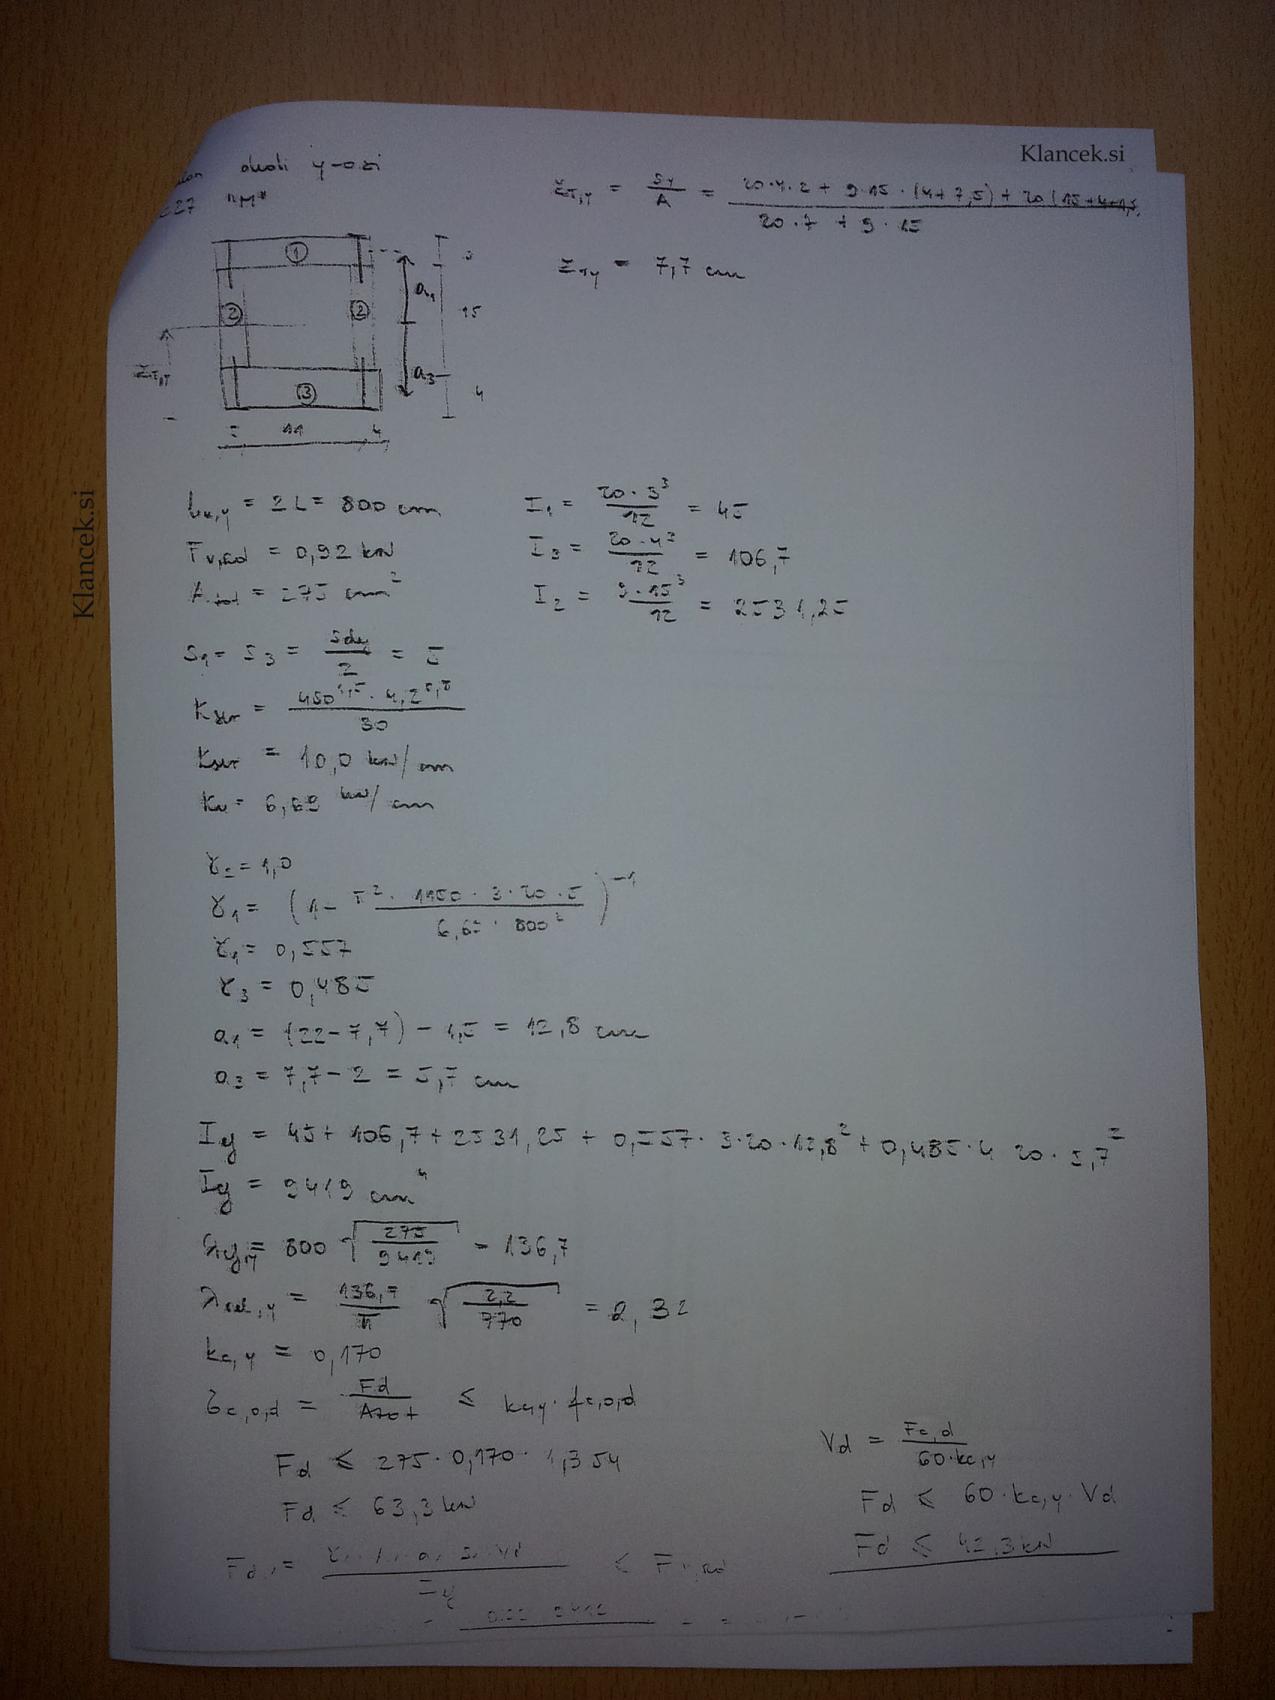 Klancek.si
okoli y-osi
C27 "M"
z_T,y = Sy/A = (20·4·2 + 9·15·(4+7,5) + 20(15+4+1,5))/(20·7 + 9·15)
z_Ty = 7,7 cm
①
②
②
③
a₁
a₃
3
15
4
11
4
Klancek.si
L_k,y = 2L = 800 cm
F_v,Rd = 0,92 kN
A_tot = 275 cm²
I₁ = 20·3³/12 = 45
I₃ = 20·4³/12 = 106,7
I₂ = 9·15³/12 = 2531,25
S₁ = S₃ = /2 = 5
K_ser = 450^1,5 · 4,2^0,8 / 30
K_ser = 10,0 kN/cm
K_u = 6,69 kN/cm
γ₂ = 1,0
γ₁ = (1 - π² · 1150 · 3·20·5 / 6,67 · 800²)⁻¹
γ₁ = 0,557
γ₃ = 0,485
a₁ = (22-7,7) - 1,5 = 12,8 cm
a₃ = 7,7-2 = 5,7 cm
I_y = 45 + 106,7 + 2531,25 + 0,557 · 3·20·12,8² + 0,485·4 20·5,7²
I_y = 9419 cm⁴
λ = 800 √(275/9419) = 136,7
λ_rel,y = 136,7/π √(2,2/770) = 2,32
k_c,y = 0,170
σ_c,0,d = Fd/A_tot ≤ k_c,y · f_c,0,d
F_d ≤ 275·0,170·1,354
F_d ≤ 63,3 kN
V_d = F_c,d/(60·k_c,y)
F_d ≤ 60·k_c,y·V_d
F_d ≤ 42,3 kN